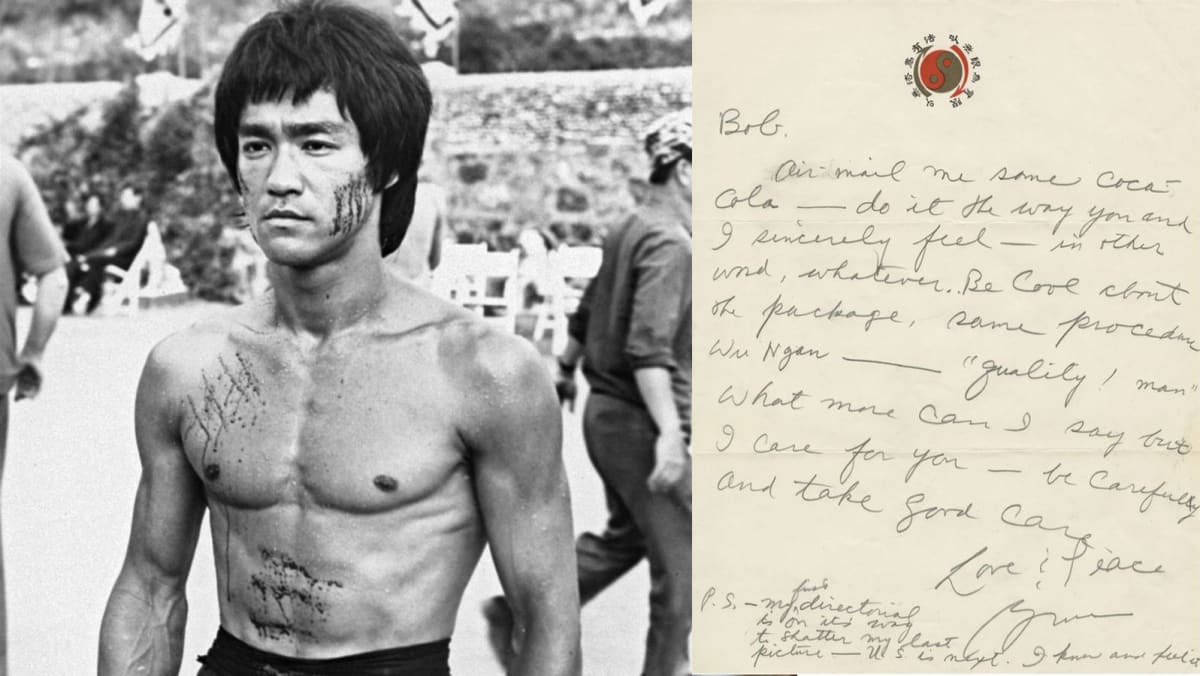 Bob.
Air mail me some Coca-
Cola — do it the way you and
I sincerely feel — in other
word, whatever.. Be Cool about
the package, same procedure
Wu Ngan —— "quality! man"
What more can I say but
I care for you — be Carefully
and take good care
Love & Peace
Bruce
P.S. — my first directorial
is on it's way
to shatter my last
picture — U S is next. I know and feel it